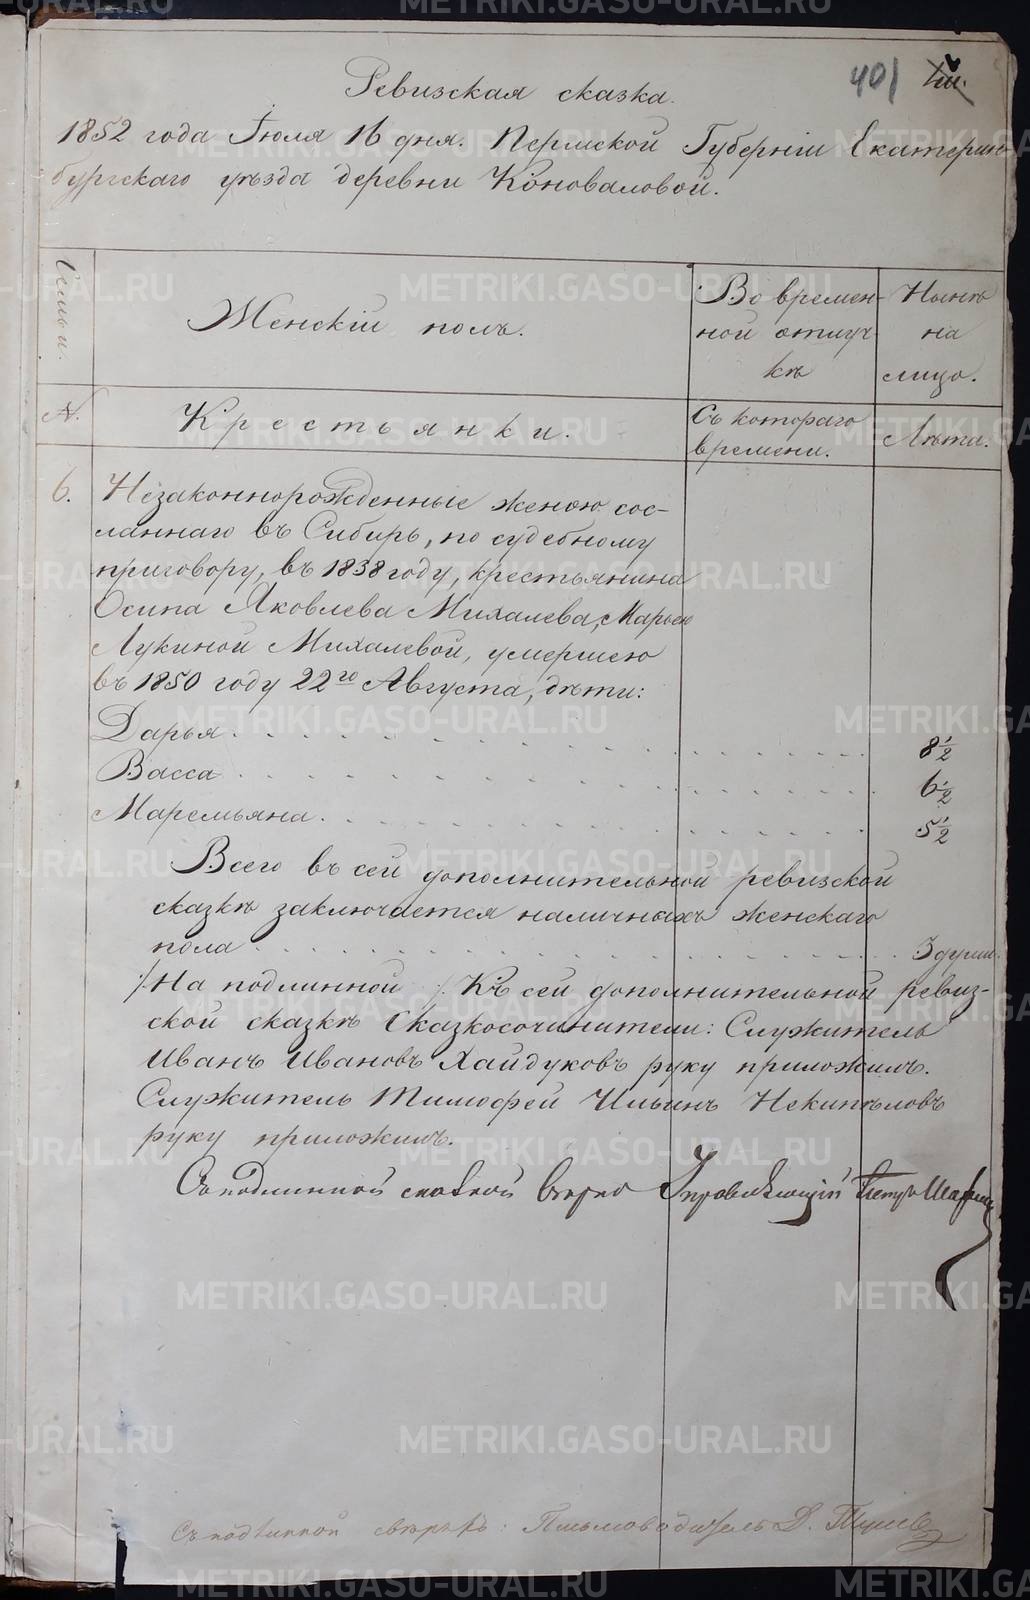 401
Ревизская сказка.
1852 года Іюля 16 дня. Пермской Губерніи Екатерин-
бургскаго уѣзда деревни Коноваловой.
Семьи.
Женскій полъ.
Во времен-
ной отлуч-
кѣ
Нынѣ
на
лицо.
N.
Крестьянки.
Съ котораго
времени.
Лѣта.
6.
Незаконнорожденные женою сос-
ланнаго въ Сибирь, по судебному
приговору, въ 1838 году, крестьянина
Осипа Яковлева Михалева, Марьею
Лукиной Михалевой, умершею
въ 1850 году 22го Августа, дѣти:
Дарья . . . . . . . . . . 8 1/2
Васса . . . . . . . . . . 6 1/2
Маремьяна . . . . . . . . . . 5 1/2
Всего въ сей дополнительной ревизской
сказкѣ заключается наличныхъ женскаго
пола . . . . . . . . . . 3 души.
/:На подлинной:/ Къ сей дополнительной ревиз-
ской сказкѣ Сказкосочинители: Служитель
Иванъ Ивановъ Хайдуковъ руку приложилъ.
Служитель Тимофей Ильинъ Некипѣловъ
руку приложилъ.
Съ подлинной сказкой вѣрно Управляющій Петръ
Съ подлинной свѣрялъ: Письмоводитель Д.
METRIKI.GASO-URAL.RU